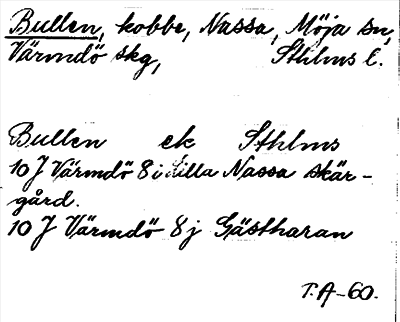 Bullen, kobbe, Nassa, Möja sn,
Värmdö skg, Sthlms l.
Bullen ek Sthlms
10 J Värmdö 8 i Lilla Nassa skär-
gård.
10 J Värmdö 8 j Gästharan
T.A-60.